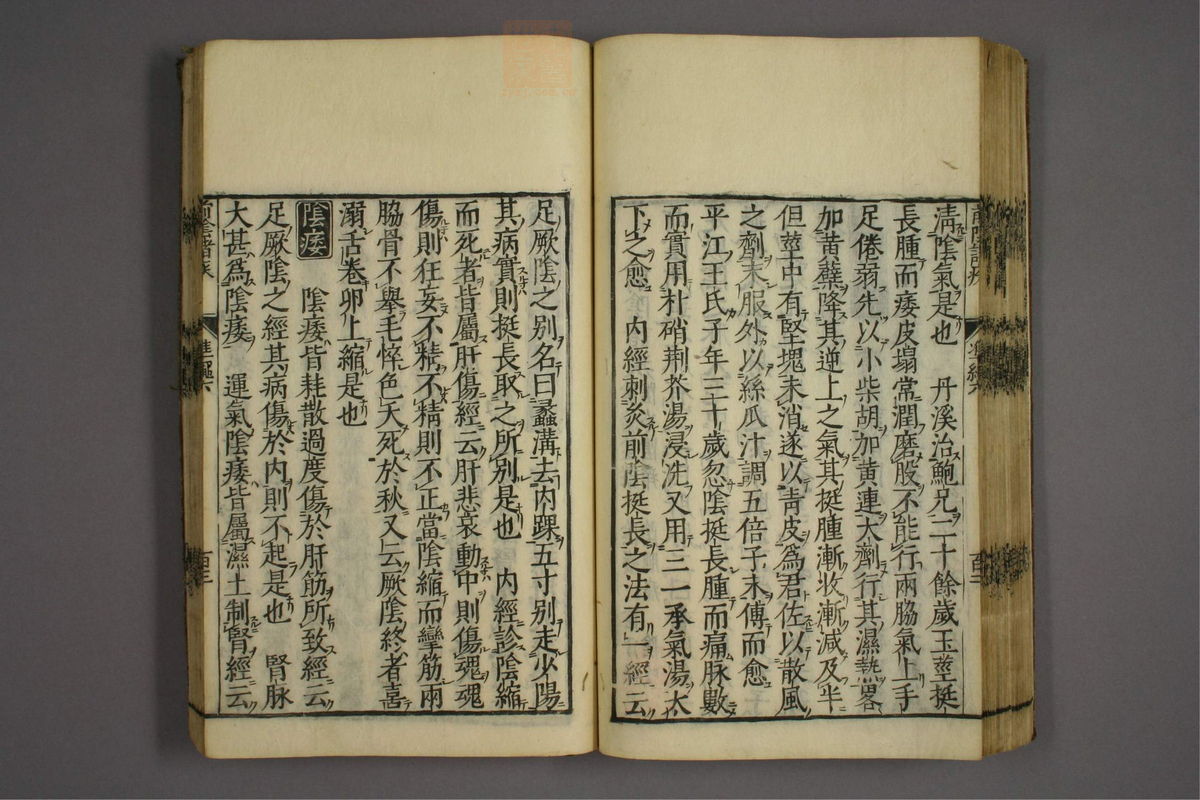 清陰氣是也　丹溪治鮑兄二十餘歲玉莖挺
長腫而痿皮塌常潤磨股不能行兩脇氣上手
足倦弱先以小柴胡加黃連大劑行其濕熱畧
加黃蘗降其逆上之氣其挺腫漸收漸減及半
但莖中有堅塊未消遂以青皮爲君佐以散風
之劑末服外以絲瓜汁調五倍子末傅而愈
平江王氏子年三十歲忽陰挺長腫而痛脉數
而實用朴硝荆芥湯浸洗又用三一承氣湯大
下之愈　內經刺灸前陰挺長之法有一經云
足厥陰之别名曰蠡溝去內踝五寸别走少陽
其病實則挺長取之所别是也　內經診陰縮
而死者皆屬肝傷經云肝悲哀動中則傷魂魂
傷則狂妄不精不精則不正當陰縮而攣筋兩
脇骨不舉毛悴色夭死於秋又云厥陰終者喜
溺舌卷卵上縮是也
陰痿　陰痿皆耗散過度傷於肝筋所致經云
足厥陰之經其病傷於內則不起是也　腎脉
大甚爲陰痿　運氣陰痿皆屬濕土制腎經云